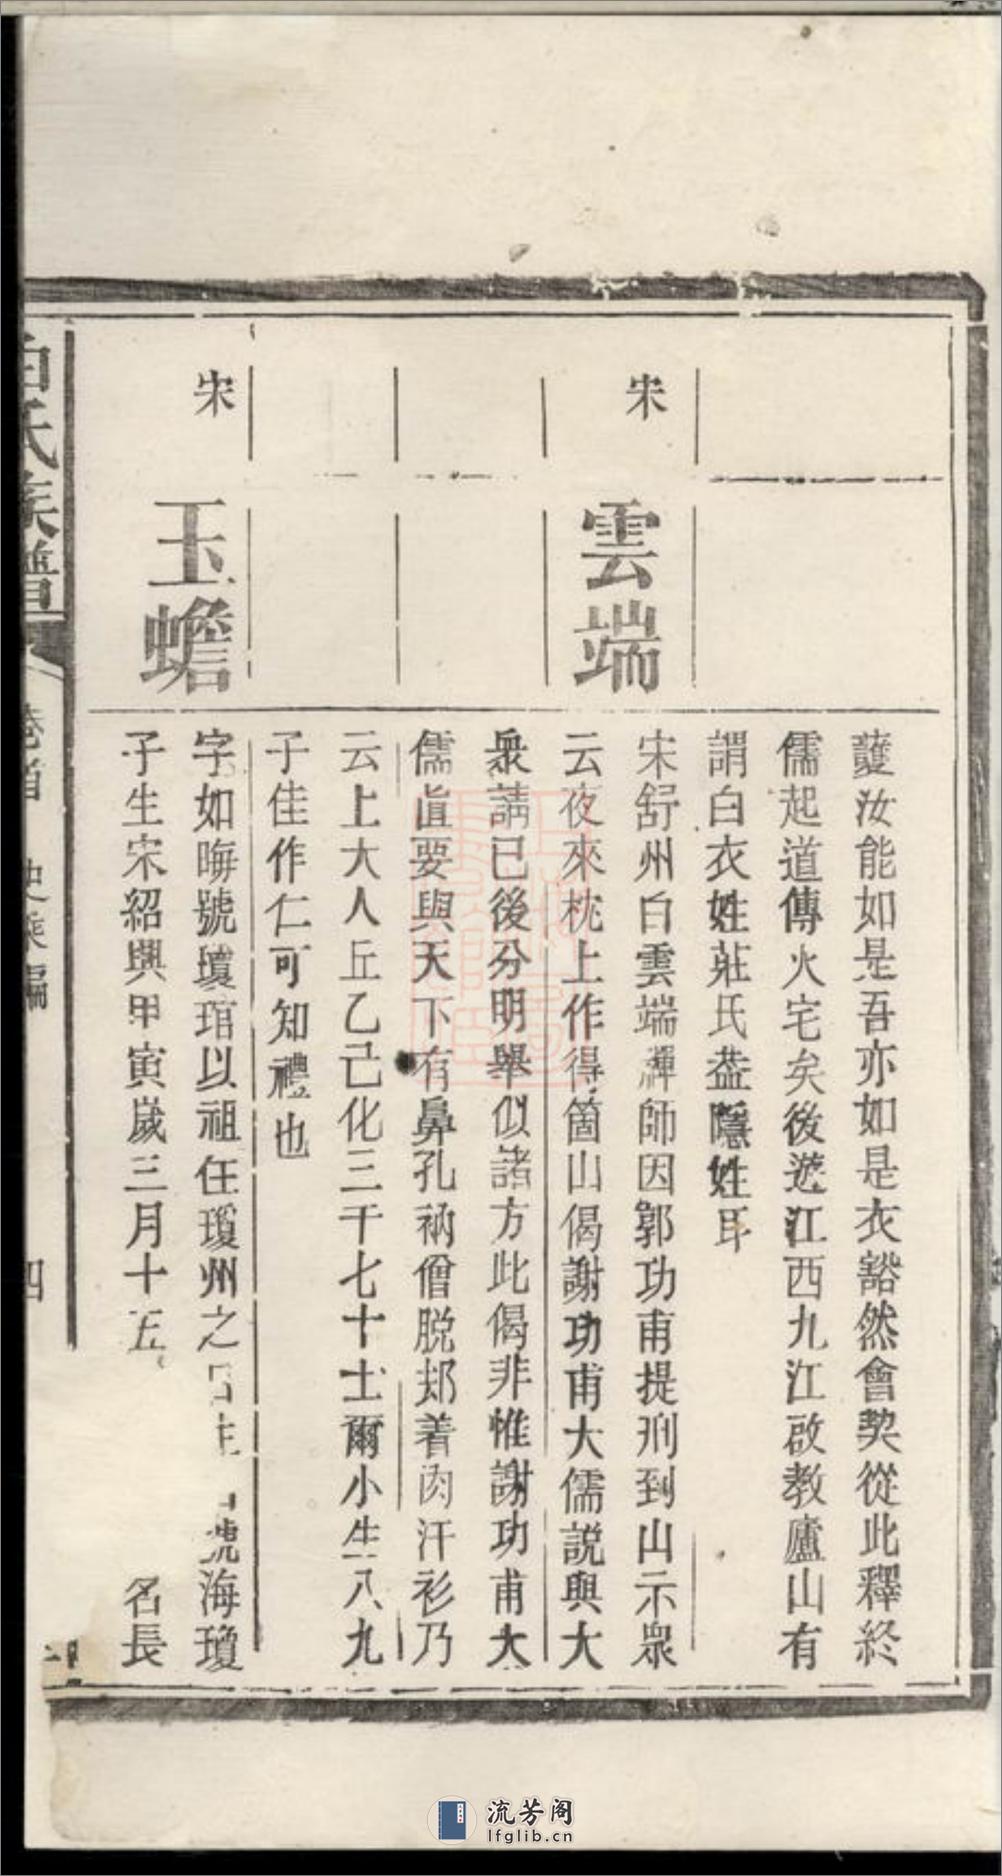 護汝能如是吾亦如是衣豁然會契從此釋終
儒起道傳火宅矣後遊江西九江啟教廬山有
謂白衣姓莊氏葢隱姓耳
宋
雲端
宋舒州白雲端禪師因郭功甫提刑到山示眾
云夜來枕上作得箇山偈謝功甫大儒説與大
衆請已後分明舉似諸方此偈非惟謝功甫大
儒直要與天下有鼻孔衲僧脱却着肉汗衫乃
云上大人丘乙己化三千七十士爾小生八九
子佳作仁可知禮也
宋
玉蟾
字如晦號瓊琯以祖任瓊州之日生號海瓊
子生宋紹興甲寅歲三月十五名長
白氏族譜 卷首 史乘編 四
流芳阁
lfglib.cn